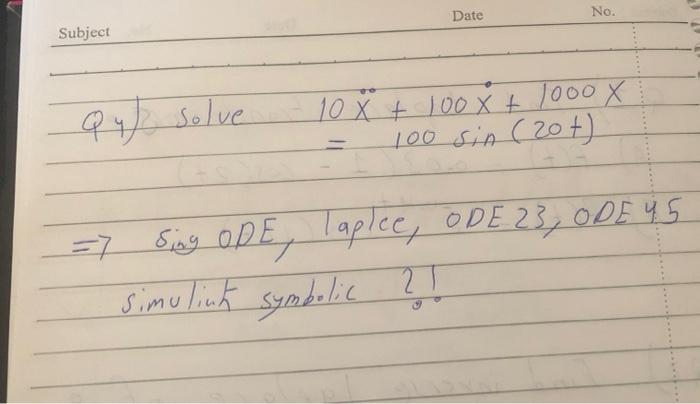 Subject
Date
No.
Q4) solve 10 ẍ + 100 ẋ + 1000 x
= 100 sin (20t)
=> Sing ODE, laplce, ODE 23, ODE 45
simulink symbolic ?!